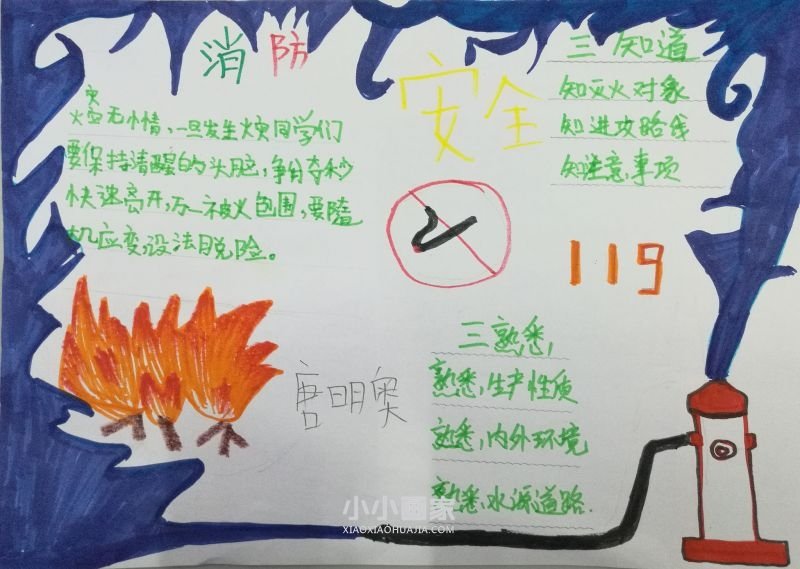 消防
安全
火灾无情，一旦发生火灾同学们
要保持清醒的头脑，争分夺秒
快速离开，万一被火包围，要随
机应变，设法脱险。
三知道
知灭火对象
知进攻路线
知注意事项
119
三熟悉，
熟悉，生产性质
熟悉，内外环境
熟悉，水源道路.
唐明奥
小小画家
XIAOXIAOHUAJIA.COM